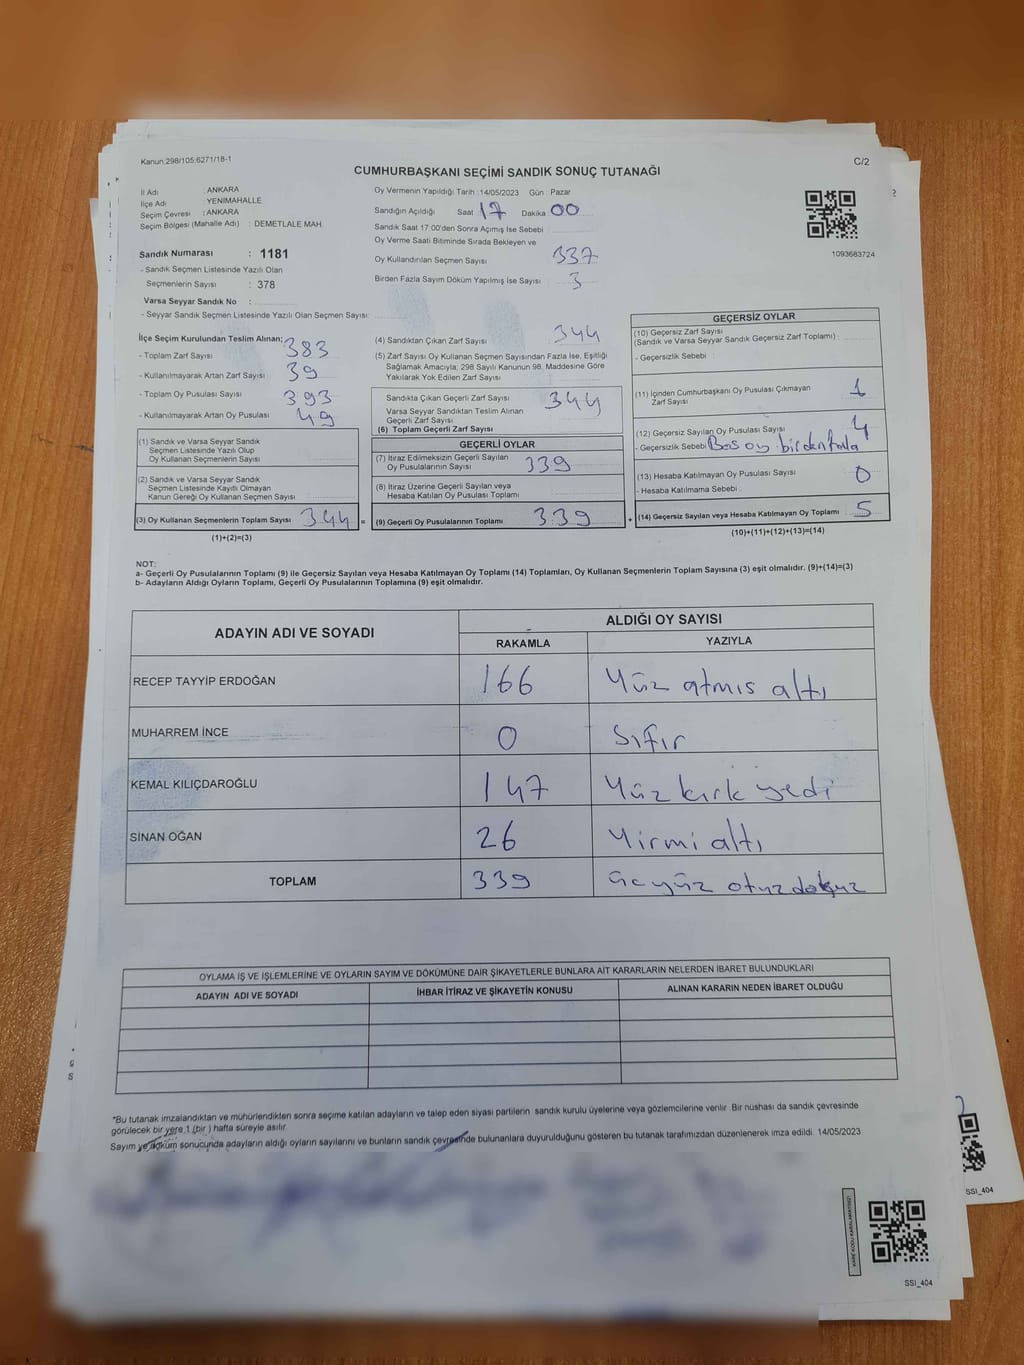 Kanun.298/105:6271/18-1
C/2
CUMHURBAŞKANI SEÇİMİ SANDIK SONUÇ TUTANAĞI
İl Adı : ANKARA
İlçe Adı : YENİMAHALLE
Seçim Çevresi : ANKARA
Seçim Bölgesi (Mahalle Adı) : DEMETLALE MAH.
Sandık Numarası : 1181
- Sandık Seçmen Listesinde Yazılı Olan
Seçmenlerin Sayısı : 378
Varsa Seyyar Sandık No :
- Seyyar Sandık Seçmen Listesinde Yazılı Olan Seçmen Sayısı:
Oy Vermenin Yapıldığı Tarih : 14/05/2023 Gün : Pazar
Sandığın Açıldığı Saat 17 Dakika 00
Sandık Saat 17:00'den Sonra Açımış İse Sebebi
Oy Verme Saati Bitiminde Sırada Bekleyen ve
Oy Kullandırılan Seçmen Sayısı 337
Birden Fazla Sayım Döküm Yapılmış İse Sayısı : 3
1093683724
İlçe Seçim Kurulundan Teslim Alınan;
- Toplam Zarf Sayısı 383
- Kullanılmayarak Artan Zarf Sayısı 39
- Toplam Oy Pusulası Sayısı 393
- Kullanılmayarak Artan Oy Pusulası 49
(1) Sandık ve Varsa Seyyar Sandık
Seçmen Listesinde Yazılı Olup
Oy Kullanan Seçmenlerin Sayısı
(2) Sandık ve Varsa Seyyar Sandık
Seçmen Listesinde Kayıtlı Olmayan
Kanun Gereği Oy Kullanan Seçmen Sayısı
(3) Oy Kullanan Seçmenlerin Toplam Sayısı 344 =
(1)+(2)=(3)
(4) Sandıktan Çıkan Zarf Sayısı 344
(5) Zarf Sayısı Oy Kullanan Seçmen Sayısından Fazla İse, Eşitliği
Sağlamak Amacıyla; 298 Sayılı Kanunun 98. Maddesine Göre
Yakılarak Yok Edilen Zarf Sayısı
Sandıkta Çıkan Geçerli Zarf Sayısı 344
Varsa Seyyar Sandıktan Teslim Alınan
Geçerli Zarf Sayısı
(6) Toplam Geçerli Zarf Sayısı
GEÇERLİ OYLAR
(7) İtiraz Edilmeksizin Geçerli Sayılan
Oy Pusulalarının Sayısı 339
(8) İtiraz Üzerine Geçerli Sayılan veya
Hesaba Katılan Oy Pusulası Toplamı
(9) Geçerli Oy Pusulalarının Toplamı 339 +
GEÇERSİZ OYLAR
(10) Geçersiz Zarf Sayısı
(Sandık ve Varsa Seyyar Sandık Geçersiz Zarf Toplamı)
- Geçersizlik Sebebi :
(11) İçinden Cumhurbaşkanı Oy Pusulası Çıkmayan
Zarf Sayısı 1
(12) Geçersiz Sayılan Oy Pusulası Sayısı 4
- Geçersizlik Sebebi Bos oy birden fazla
(13) Hesaba Katılmayan Oy Pusulası Sayısı 0
- Hesaba Katılmama Sebebi :
(14) Geçersiz Sayılan veya Hesaba Katılmayan Oy Toplamı 5
(10)+(11)+(12)+(13)=(14)
NOT:
a- Geçerli Oy Pusulalarının Toplamı (9) ile Geçersiz Sayılan veya Hesaba Katılmayan Oy Toplamı (14) Toplamları, Oy Kullanan Seçmenlerin Toplam Sayısına (3) eşit olmalıdır. (9)+(14)=(3)
b- Adayların Aldığı Oyların Toplamı, Geçerli Oy Pusulalarının Toplamına (9) eşit olmalıdır.
ADAYIN ADI VE SOYADI
ALDIĞI OY SAYISI
RAKAMLA YAZIYLA
RECEP TAYYİP ERDOĞAN 166 Yüz atmıs altı
MUHARREM İNCE 0 Sıfır
KEMAL KILIÇDAROĞLU 147 Yüz kırk yedi
SİNAN OĞAN 26 Yirmi altı
TOPLAM 339 üçyüz otuz dokuz
OYLAMA İŞ VE İŞLEMLERİNE VE OYLARIN SAYIM VE DÖKÜMÜNE DAİR ŞİKAYETLERLE BUNLARA AİT KARARLARIN NELERDEN İBARET BULUNDUKLARI
ADAYIN ADI VE SOYADI İHBAR İTİRAZ VE ŞİKAYETİN KONUSU ALINAN KARARIN NEDEN İBARET OLDUĞU
*Bu tutanak imzalandıktan ve mühürlendikten sonra seçime katılan adayların ve talep eden siyasi partilerin sandık kurulu üyelerine veya gözlemcilerine verilir. Bir nüshası da sandık çevresinde
görülecek bir yere 1 (bir ) hafta süreyle asılır.
Sayım ve döküm sonucunda adayların aldığı oyların sayılarını ve bunların sandık çevresinde bulunanlara duyurulduğunu gösteren bu tutanak tarafımızdan düzenlenerek imza edildi. 14/05/2023
SSI_404
SSI_404